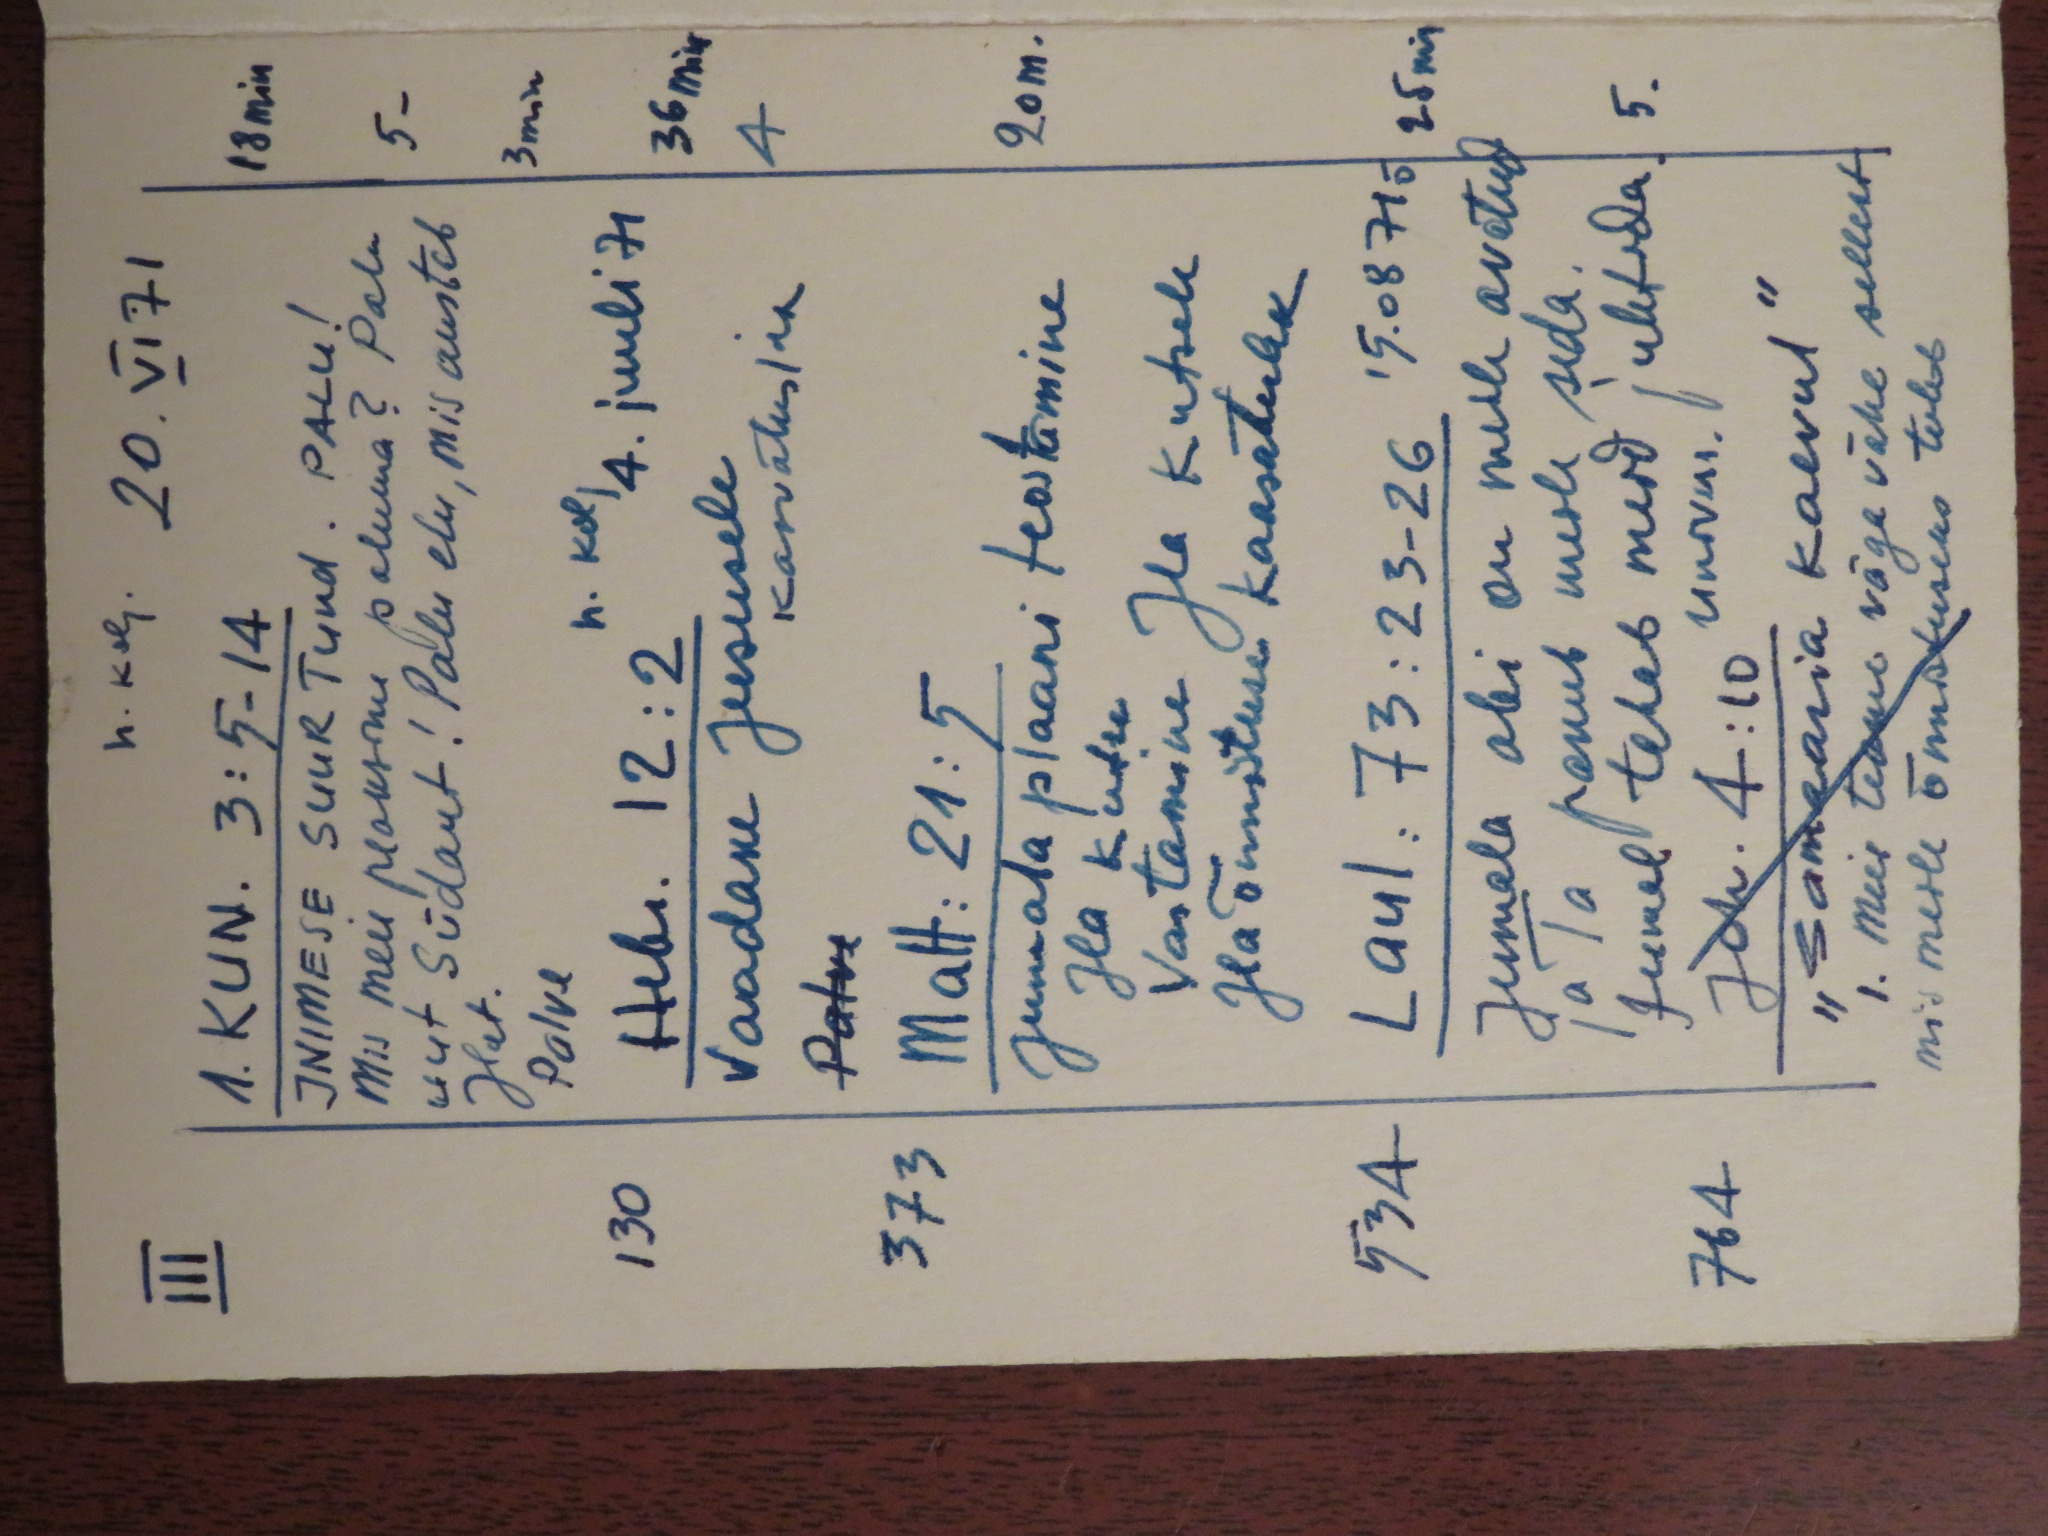 III
h. kolj. 20. VI 71
1. KUN. 3:5-14 18 min
INIMESE SUUR TUND. PALU!
Mis meie peaksime paluma? Palu 5-
uut südant! Palu elu, mis austab
Jlat.
Palve 3 min
h. kolj
130 Hebr. 12:2 4. juuli 71 36 min
Vaadake Jeesusele 4
kannatuslik
Palve
373 Matt: 21:5 20 m.
Jumala plaani teostamine
Jla kutse
Vastamine Jla kutsele
Jla õnnistuse kaasatulek
534 Laul: 73:23-26 15.08 71 õ 25 min
Jumala abi on meile avatud
Ta paneb meele seda.
Jumal teheb meid julgeda 5.
764 Joh. 4:10
"Samaaria kaevul"
1. Meie teame väga vähe sellest
mis meile õnnistuseks tuleb